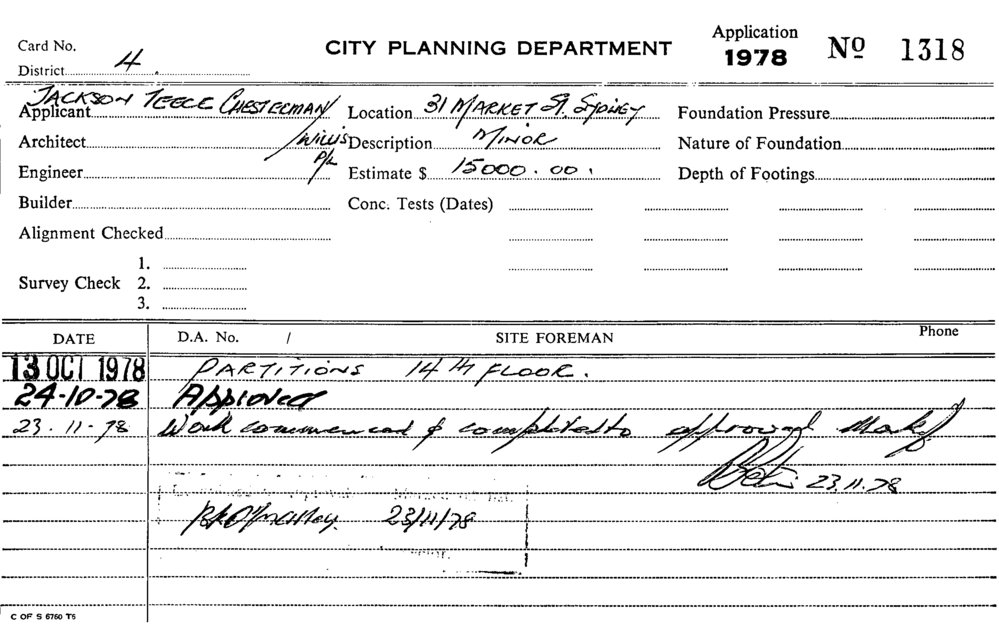 Card No.
CITY PLANNING DEPARTMENT
Application
1978
Nº 1318
District 4.
Applicant JACKSON TEECE CHESTERMAN
Location 31 MARKET St. SYDNEY
Foundation Pressure
Architect /WILLIS
Description MINOR
Nature of Foundation
P/L
Engineer
Estimate $ 15000.00.
Depth of Footings
Builder
Conc. Tests (Dates)
Alignment Checked
Survey Check
1.
2.
3.
DATE
D.A. No. /
SITE FOREMAN
Phone
13 OCT 1978
PARTITIONS 14th FLOOR.
24-10-78
Approved
23.11-78
Work commenced & completed to approval
23.11.78
23/11/78
C OF S 6760 T5